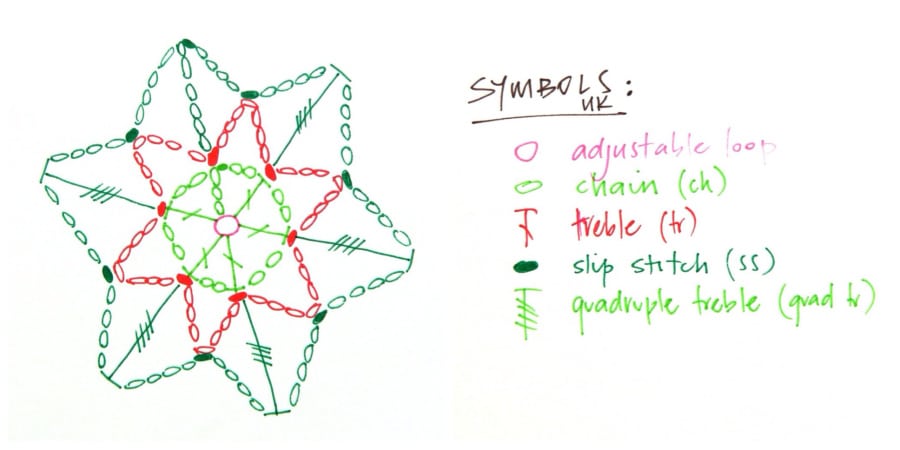 SYMBOLS:
UK
adjustable loop
chain (ch)
treble (tr)
slip stitch (ss)
quadruple treble (quad tr)